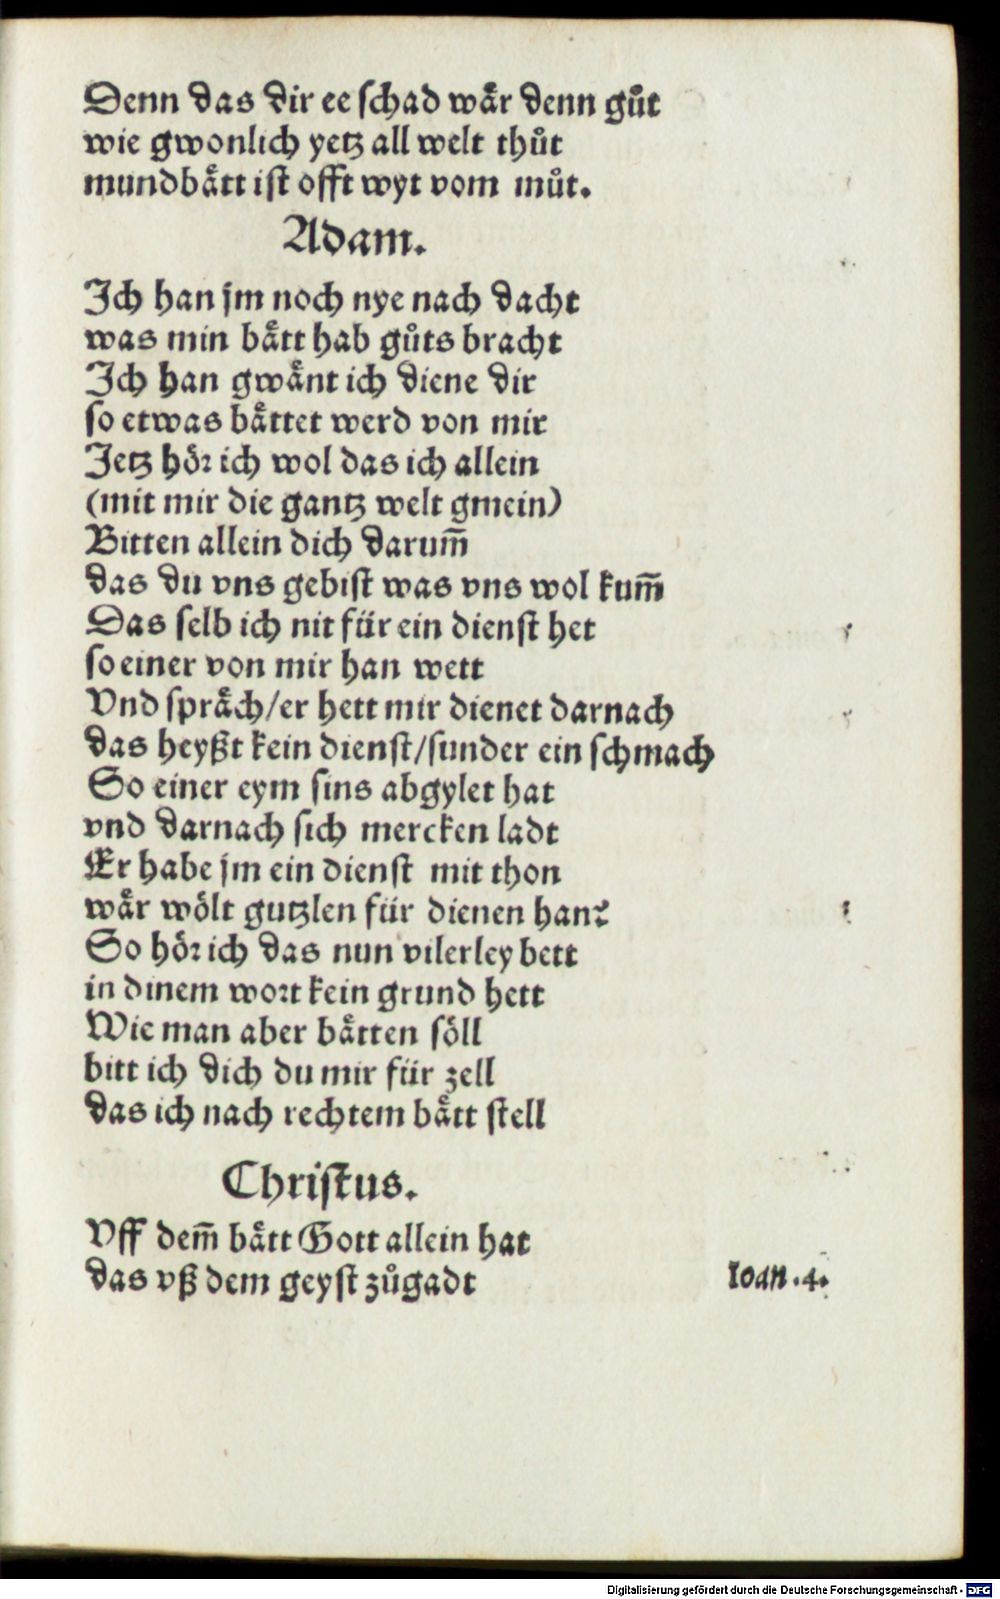 Denn das dir ee schad wår denn gůt
wie gwonlich yetz all welt thůt
mundbått ist offt wyt vom můt.
Adam.
Ich han jm noch nye nach dacht
was min bått hab gůts bracht
Ich han gwånt ich diene dir
so etwas båttet werd von mir
Jetz hör ich wol das ich allein
(mit mir die gantz welt gmein)
Bitten allein dich darum̅
das du vns gebist was vns wol kum̅
Das selb ich nit für ein dienst het
so einer von mir han wett
Vnd språch/er hett mir dienet darnach
das heyßt kein dienst/sunder ein schmach
So einer eym sins abgylet hat
vnd darnach sich mercken ladt
Er habe jm ein dienst mit thon
wår wölt gutzlen für dienen han?
So hör ich das nun vilerley bett
in dinem wort kein grund hett
Wie man aber båtten söll
bitt ich dich du mir für zell
das ich nach rechtem bått stell
Christus.
Vff dem̅ bått Gott allein hat
das vß dem geyst zůgadt
Ioan.4.
Digitalisierung gefördert durch die Deutsche Forschungsgemeinschaft - DFG